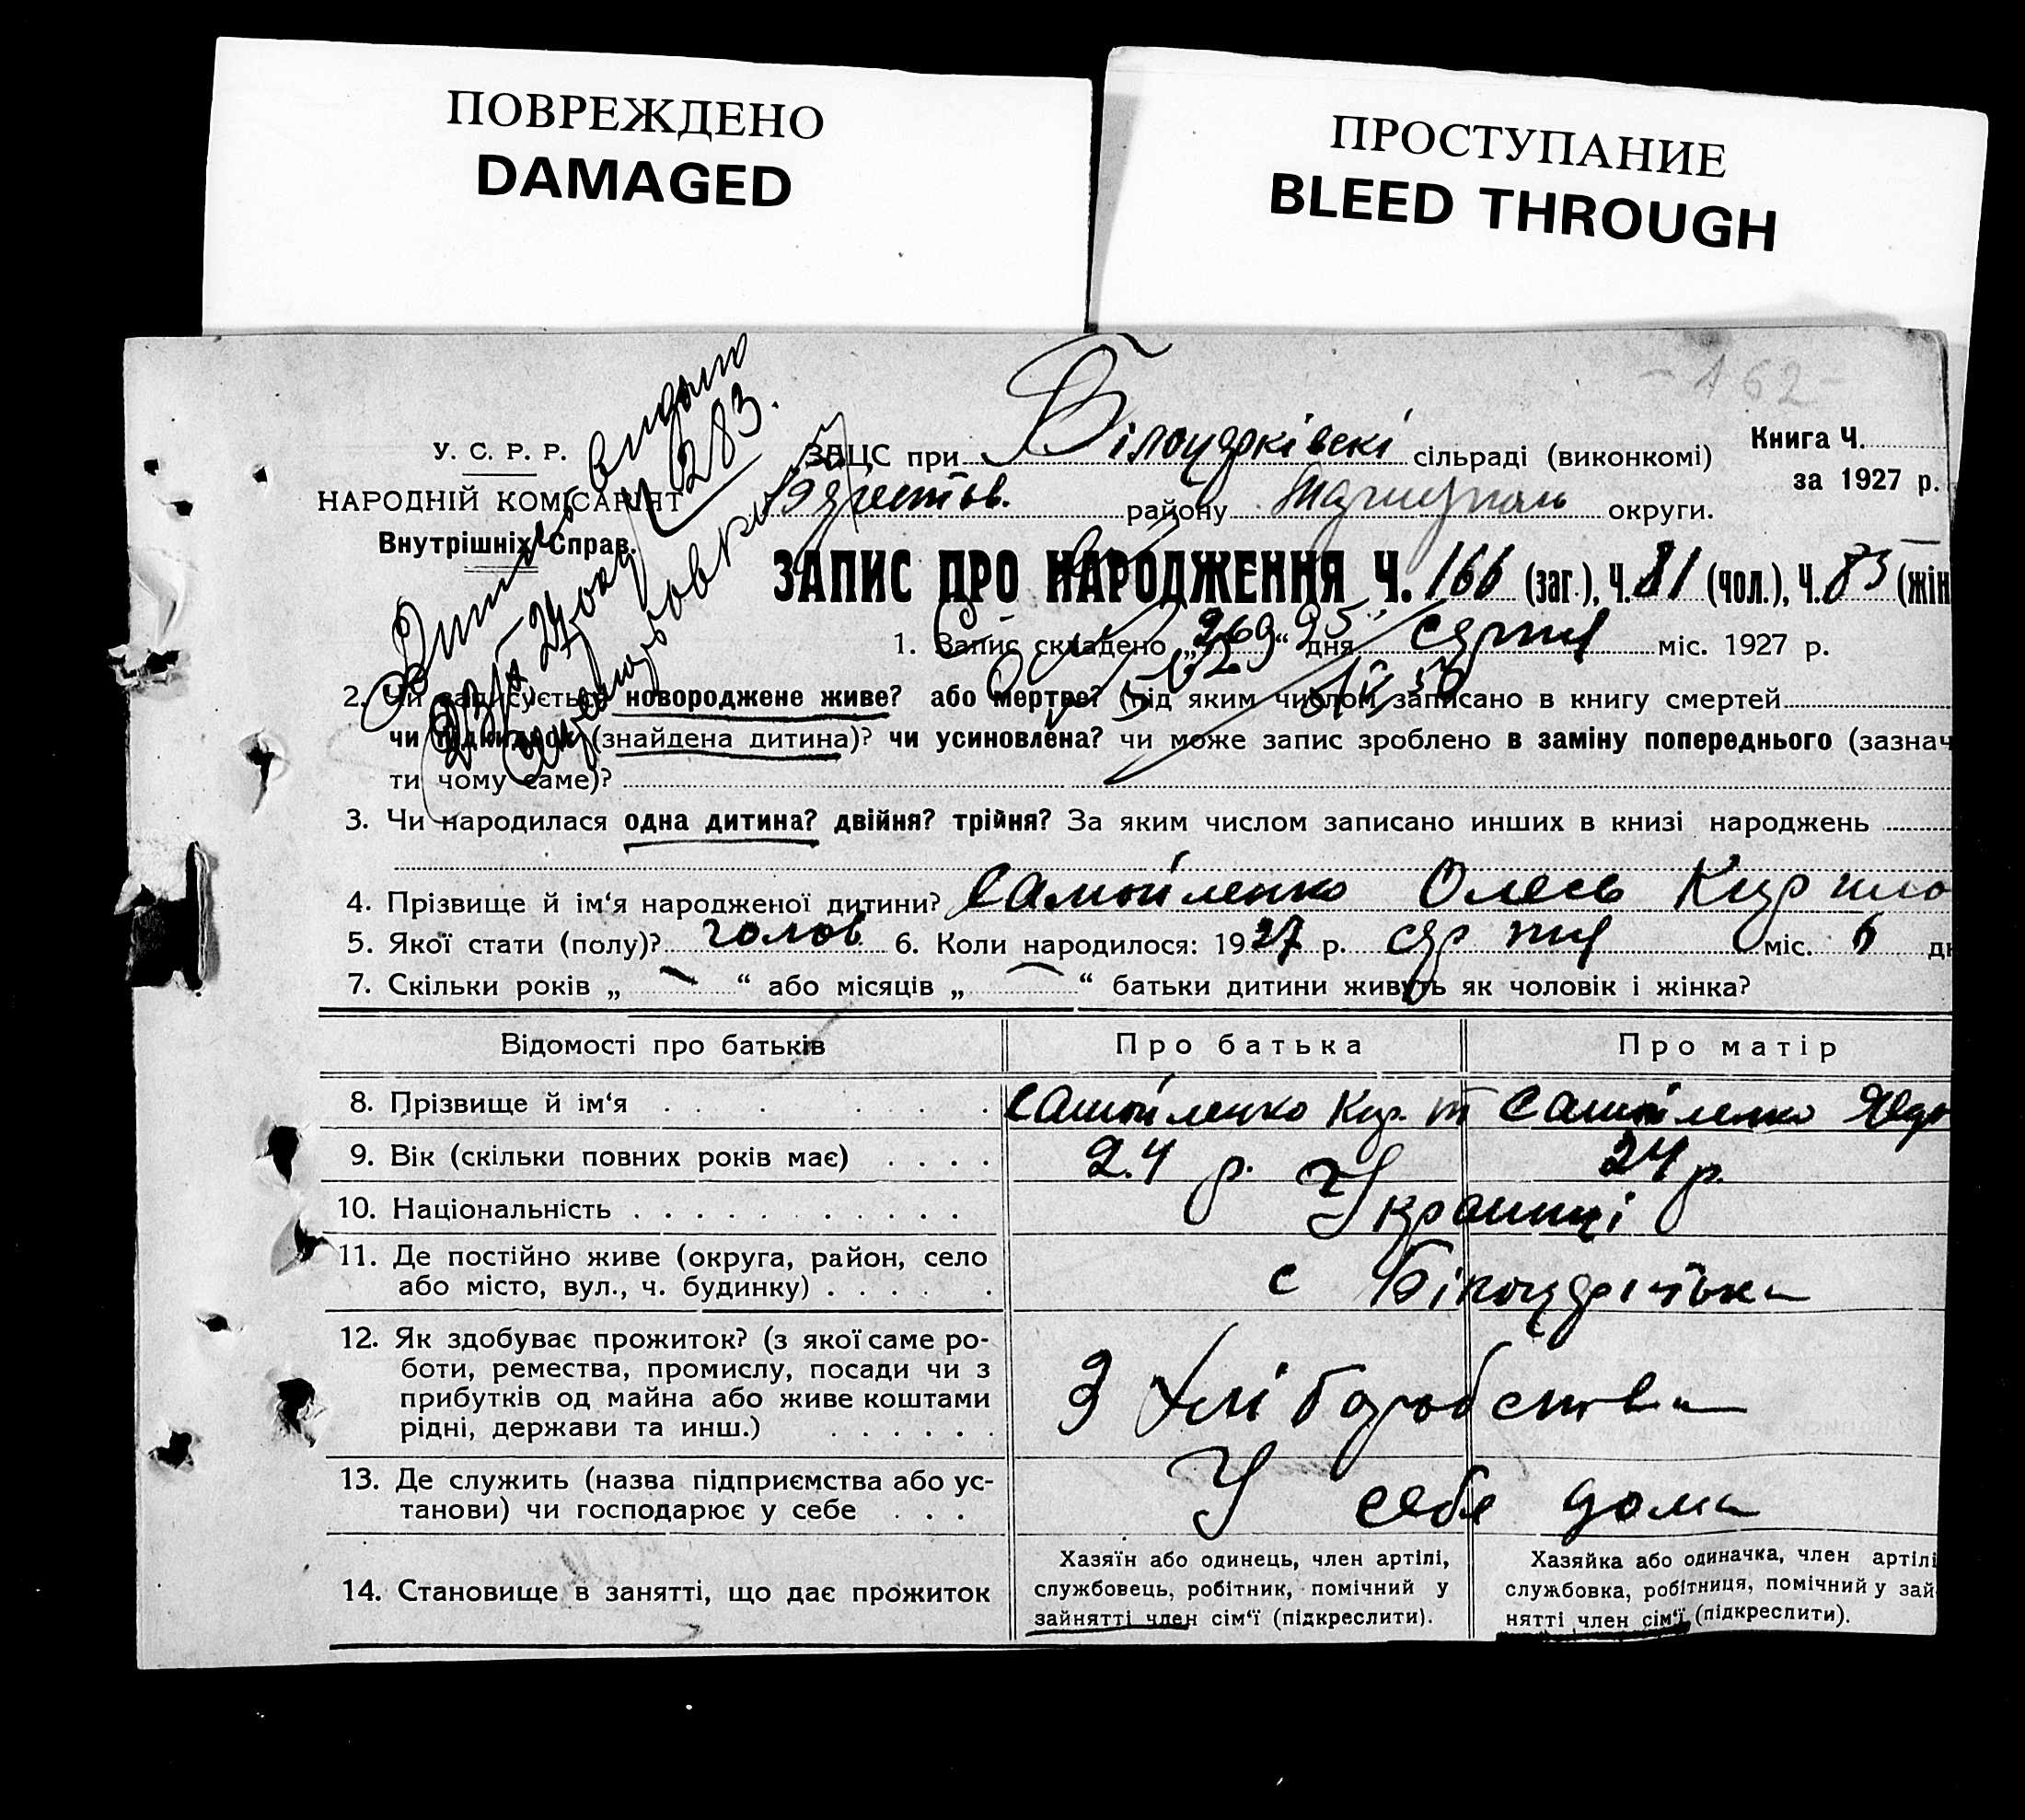 ПОВРЕЖДЕНО
DAMAGED
ПРОСТУПАНИЕ
BLEED THROUGH
162
У. С. Р. Р.
НАРОДНІЙ КОМІСАРІЯТ
Внутрішніх Справ.
видано
283.
ЗАЦС при Білоцерківскі сільраді (виконкомі)
Книга Ч.
за 1927 р.
району округи.
ЗАПИС ПРО НАРОДЖЕННЯ Ч. 166 (заг.), Ч. 81 (чол.), Ч. 85 (жін
1. Запис складено „ “ дня серпня міс. 1927 р.
2. Чи записується новороджене живе? або мертве? (під яким числом записано в книгу смертей
чи підкидьок (знайдена дитина)? чи усиновлена? чи може запис зроблено в заміну попереднього (зазнач
ти чому саме)?
3. Чи народилася одна дитина? двійня? трійня? За яким числом записано инших в книзі народжень
4. Прізвище й ім‘я народженої дитини? Самойленко Олесь Кирило
5. Якої стати (полу)? чолов. 6. Коли народилося: 1927 р. серпня міс. 6 дн
7. Скільки років „ “ або місяців „ “ батьки дитини живуть як чоловік і жінка?
Відомості про батьків Про батька Про матір
8. Прізвище й ім‘я Самойленко Кир. Самойленко
9. Вік (скільки повних років має) 24 р. 24 р.
10. Національність Українці
11. Де постійно живе (округа, район, село
або місто, вул., ч. будинку) с Білоцерківка
12. Як здобуває прожиток? (з якої саме ро-
боти, ремества, промислу, посади чи з
прибутків од майна або живе коштами
рідні, держави та инш.) З хліборобства
13. Де служить (назва підприємства або ус-
танови) чи господарює у себе У себе дома
14. Становище в занятті, що дає прожиток
Хазяїн або одинець, член артілі,
службовець, робітник, помічний у
зайнятті член сім‘ї (підкреслити).
Хазяйка або одиначка, член артілі
службовка, робітниця, помічний у зай-
нятті член сім‘ї (підкреслити).